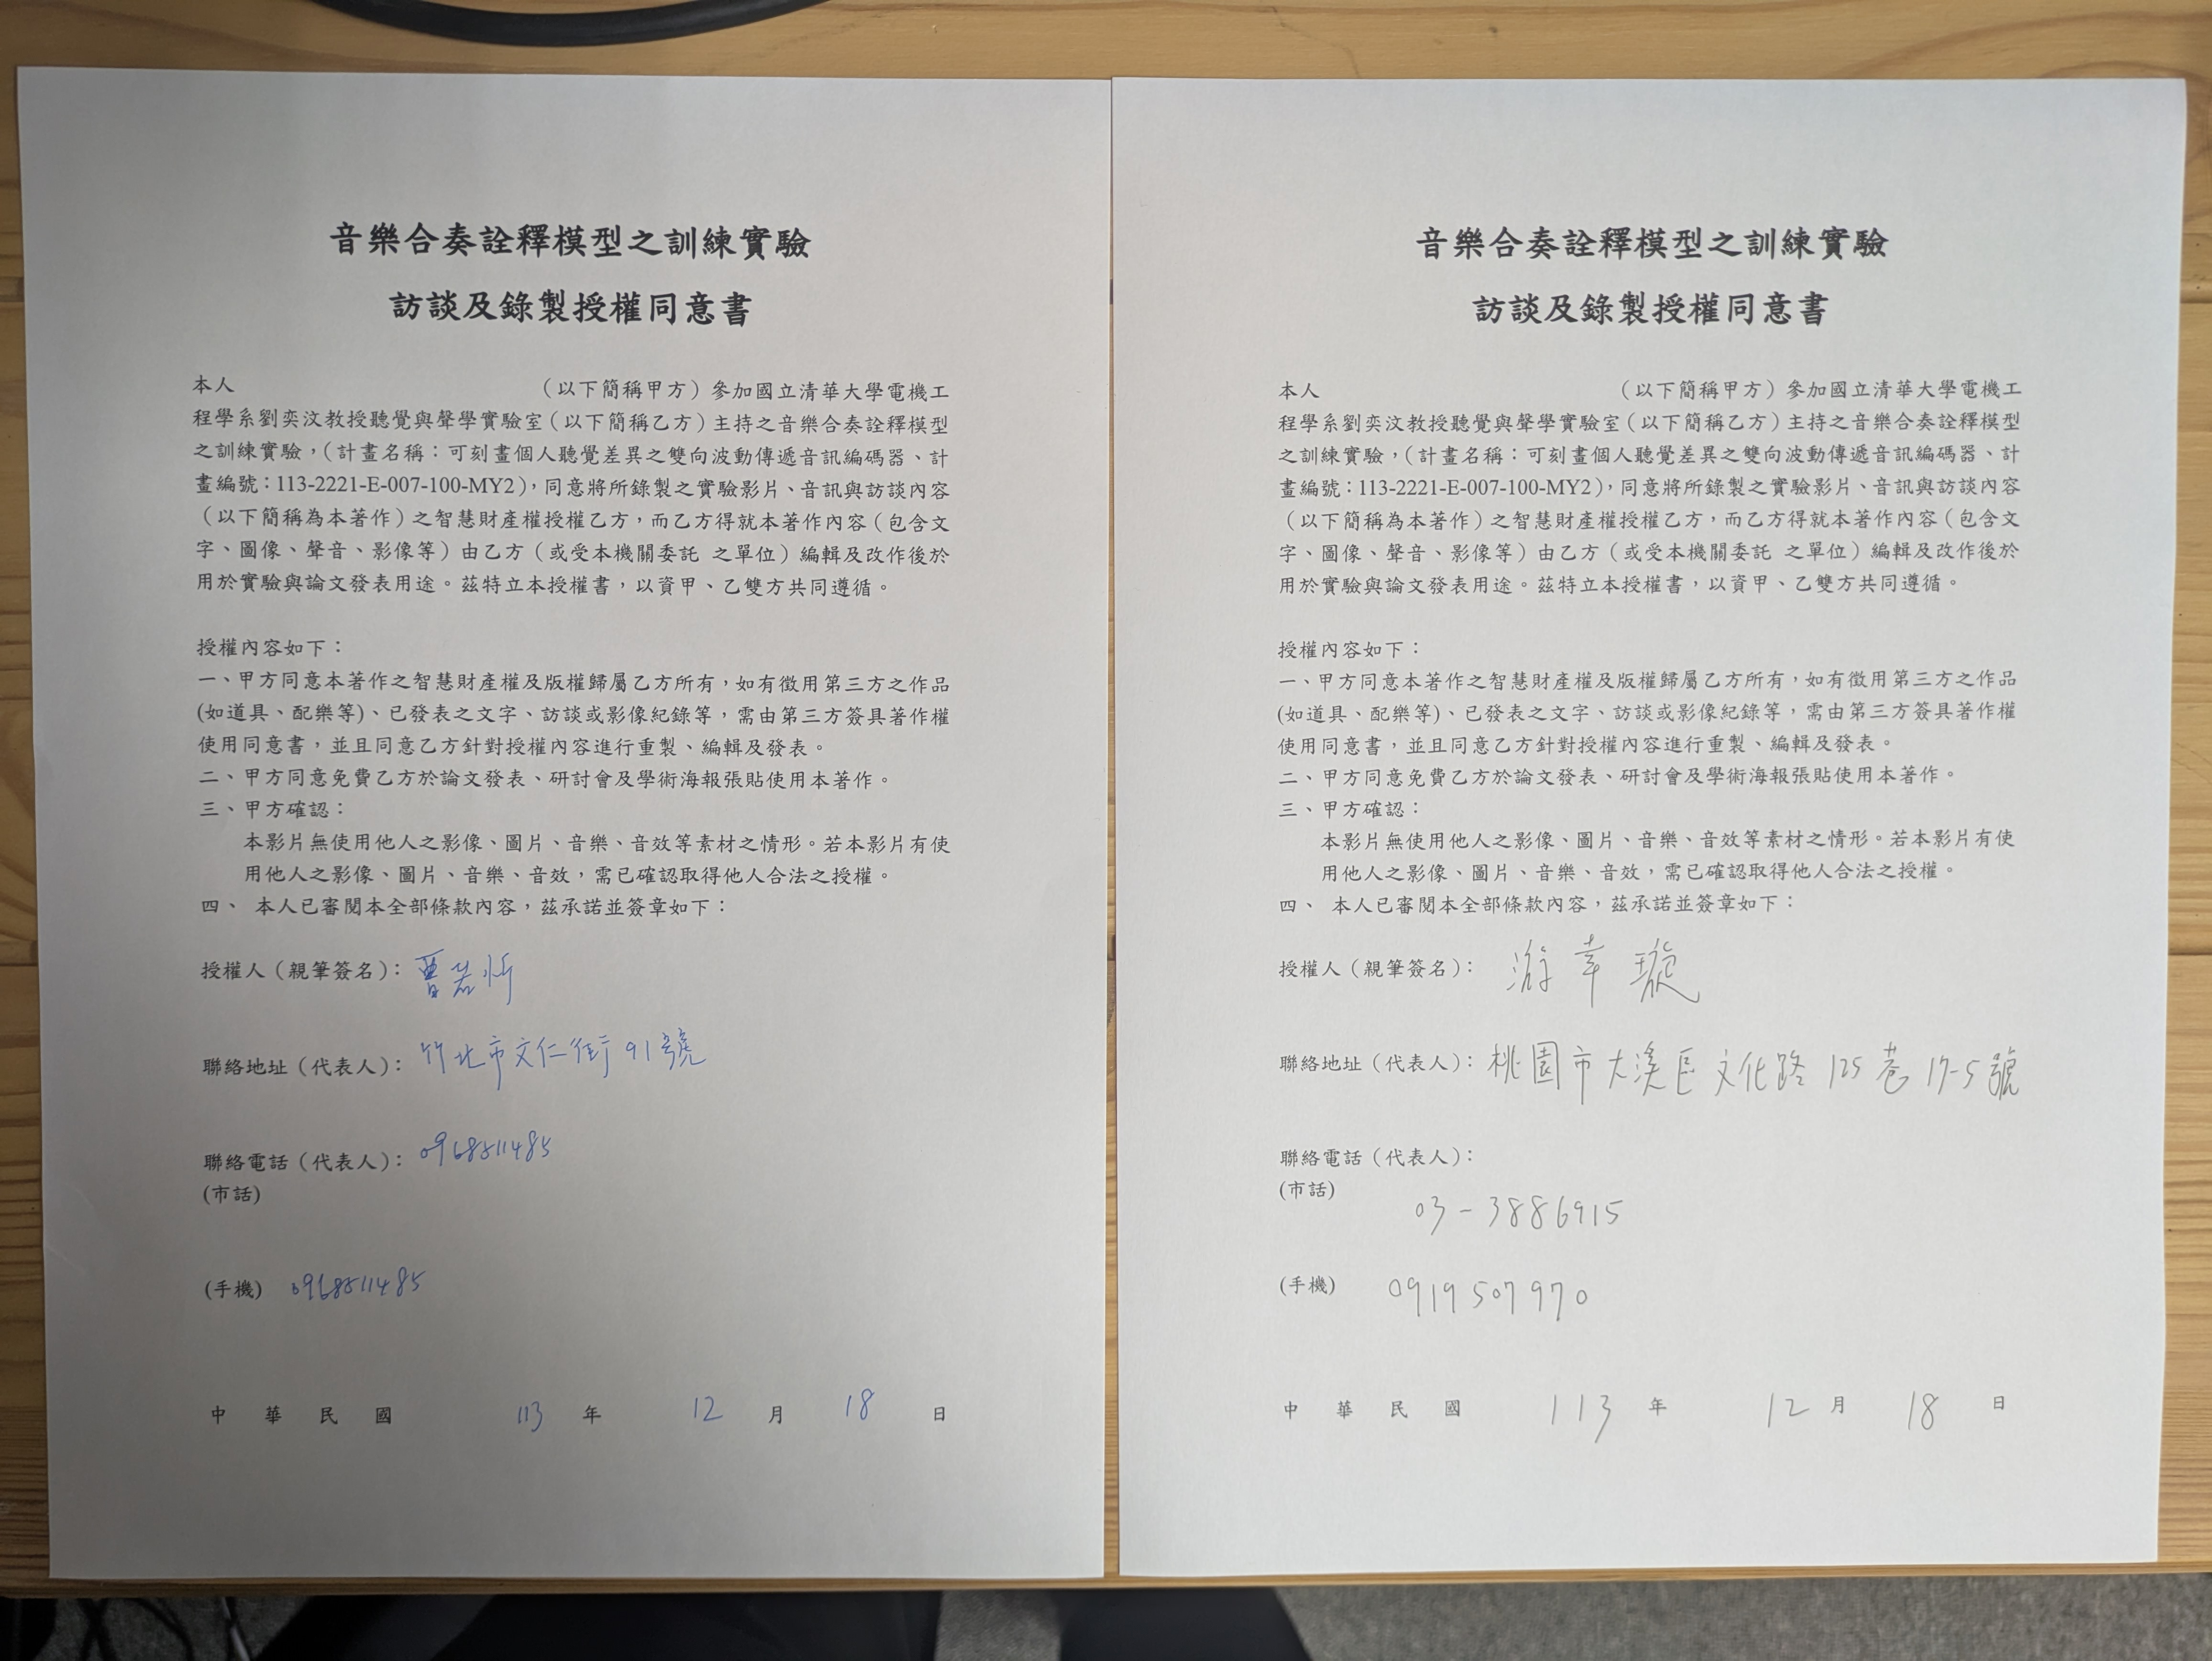 音樂合奏詮釋模型之訓練實驗
訪談及錄製授權同意書
本人 （以下簡稱甲方）參加國立清華大學電機工
程學系劉奕汶教授聽覺與聲學實驗室（以下簡稱乙方）主持之音樂合奏詮釋模型
之訓練實驗，（計畫名稱：可刻畫個人聽覺差異之雙向波動傳遞音訊編碼器、計
畫編號：113-2221-E-007-100-MY2），同意將所錄製之實驗影片、音訊與訪談內容
（以下簡稱為本著作）之智慧財產權授權乙方，而乙方得就本著作內容（包含文
字、圖像、聲音、影像等）由乙方（或受本機關委託 之單位）編輯及改作後於
用於實驗與論文發表用途。茲特立本授權書，以資甲、乙雙方共同遵循。
授權內容如下：
一、甲方同意本著作之智慧財產權及版權歸屬乙方所有，如有徵用第三方之作品
(如道具、配樂等)、已發表之文字、訪談或影像紀錄等，需由第三方簽具著作權
使用同意書，並且同意乙方針對授權內容進行重製、編輯及發表。
二、甲方同意免費乙方於論文發表、研討會及學術海報張貼使用本著作。
三、甲方確認：
本影片無使用他人之影像、圖片、音樂、音效等素材之情形。若本影片有使
用他人之影像、圖片、音樂、音效，需已確認取得他人合法之授權。
四、 本人已審閱本全部條款內容，茲承諾並簽章如下：
授權人（親筆簽名）：曹若
聯絡地址（代表人）：竹北市文仁街91號
聯絡電話（代表人）：0968511485
(市話)
(手機) 0968511485
中 華 民 國 113 年 12 月 18 日
音樂合奏詮釋模型之訓練實驗
訪談及錄製授權同意書
本人 （以下簡稱甲方）參加國立清華大學電機工
程學系劉奕汶教授聽覺與聲學實驗室（以下簡稱乙方）主持之音樂合奏詮釋模型
之訓練實驗，（計畫名稱：可刻畫個人聽覺差異之雙向波動傳遞音訊編碼器、計
畫編號：113-2221-E-007-100-MY2），同意將所錄製之實驗影片、音訊與訪談內容
（以下簡稱為本著作）之智慧財產權授權乙方，而乙方得就本著作內容（包含文
字、圖像、聲音、影像等）由乙方（或受本機關委託 之單位）編輯及改作後於
用於實驗與論文發表用途。茲特立本授權書，以資甲、乙雙方共同遵循。
授權內容如下：
一、甲方同意本著作之智慧財產權及版權歸屬乙方所有，如有徵用第三方之作品
(如道具、配樂等)、已發表之文字、訪談或影像紀錄等，需由第三方簽具著作權
使用同意書，並且同意乙方針對授權內容進行重製、編輯及發表。
二、甲方同意免費乙方於論文發表、研討會及學術海報張貼使用本著作。
三、甲方確認：
本影片無使用他人之影像、圖片、音樂、音效等素材之情形。若本影片有使
用他人之影像、圖片、音樂、音效，需已確認取得他人合法之授權。
四、 本人已審閱本全部條款內容，茲承諾並簽章如下：
授權人（親筆簽名）：游幸璇
聯絡地址（代表人）：桃園市大溪區文化路125巷17-5號
聯絡電話（代表人）：
(市話)
03-3886915
(手機) 0919507970
中 華 民 國 113 年 12 月 18 日